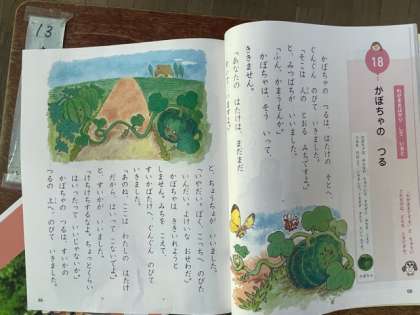 13
18
かぼちゃの つる
かぼちゃの つるは、はたけの そとへ
ぐんぐん のびて いきました。
「そこは 人の とおる みちですよ。」
と、みつばちが いいました。
「ふん、かまうもんか。」
かぼちゃは、そう いって、
ききません。
「あなたの はたけは、まだまだ
と、ちょうちょが いいました。
「いやだい。ぼく、こっちへ のびた
いんだい。よけいな おせわだ。」
かぼちゃは ききいれようと
しません。みちを こえて、
すいかばたけへ、ぐんぐん のびて
いきました。
「あのね、ここは わたしの はたけ
だから、はいって こないでよ。」
と、すいかが いいました。
「けちけちするなよ。ちょっとくらい
はいったって いいじゃないか。」
かぼちゃの つるは、すいかの
つるの 上へ のびて いきました。